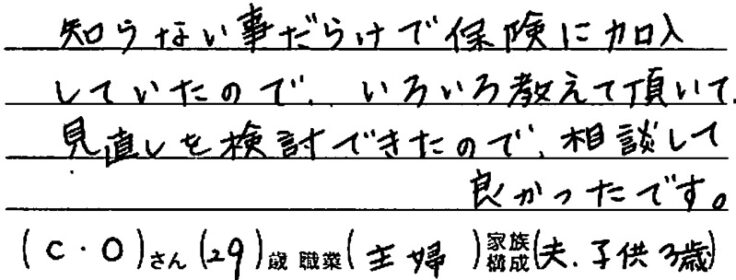 知らない事だらけで保険に加入
していたので、いろいろ教えて頂いて、
見直しを検討できたので、相談して
良かったです。
(C・O)さん(29)歳 職業(主婦)家族構成(夫、子供3歳)